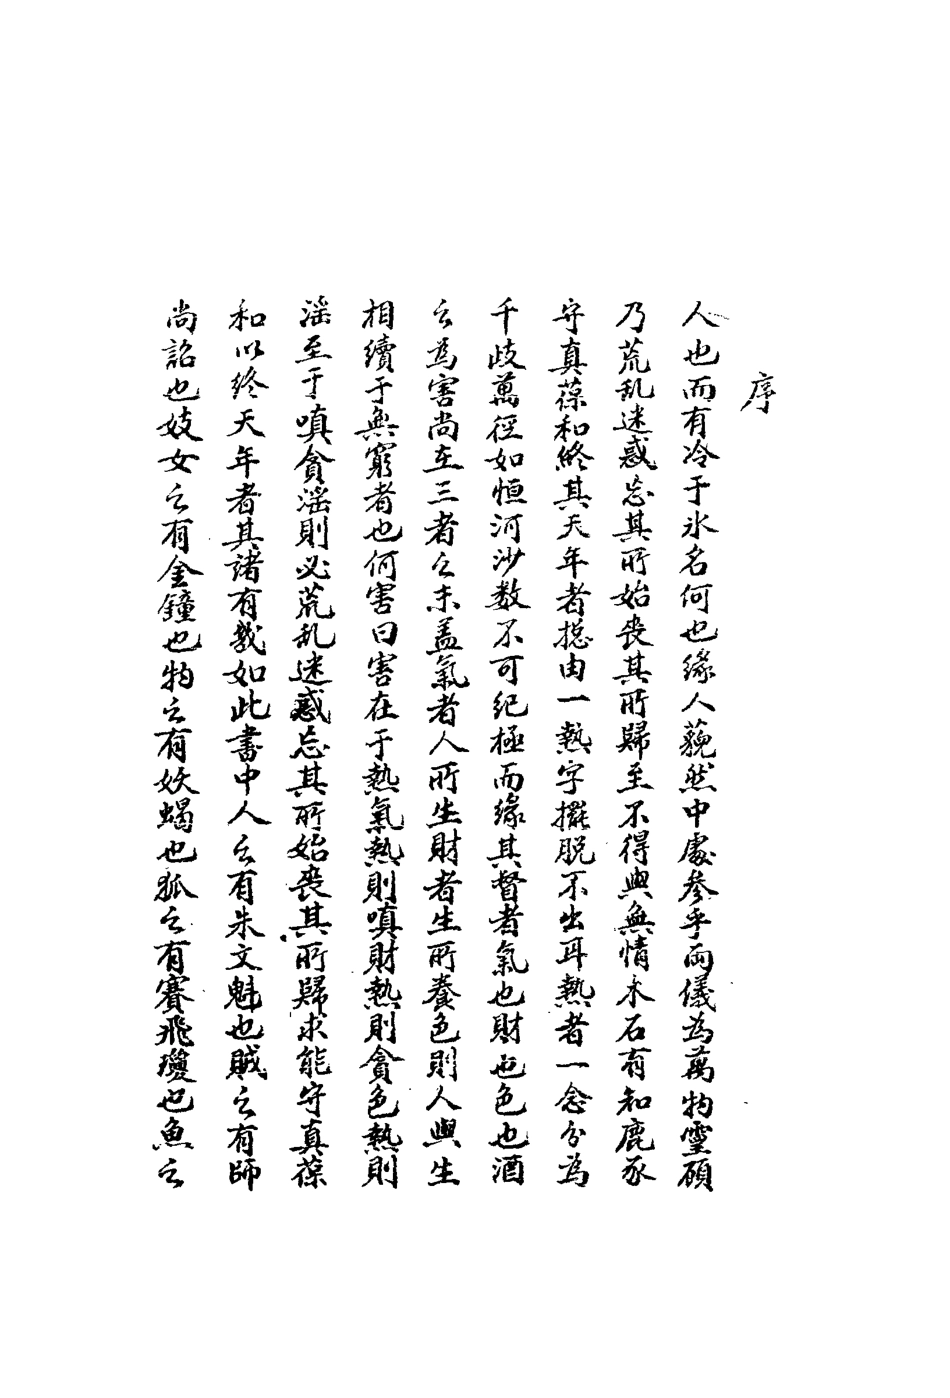 序
人也而有冷于氷名何也緣人藐然中處參乎両儀為萬物霊碩
乃荒乱迷惑忘其所始喪其所歸至不得與無情木石有知鹿豕
守真葆和終其天年者摠由一熱字擺脱不出耳熱者一念分為
千歧萬徑如恒河沙数不可紀極而緣其督者氣也財也色也酒
之為害尚在三者之末盖氣者人所生財者生所養色則人與生
相續于無窮者也何害曰害在于熱氣熱則嗔財熱則貪色熱則
滛至于嗔貪滛則必荒乱迷惑忘其所始喪其所歸求能守真葆
和以终天年者其諸有幾如此書中人之有朱文魁也賊之有師
尚詔也妓女之有金鐘也物之有妖蝎也狐之有賽飛瓊也魚之